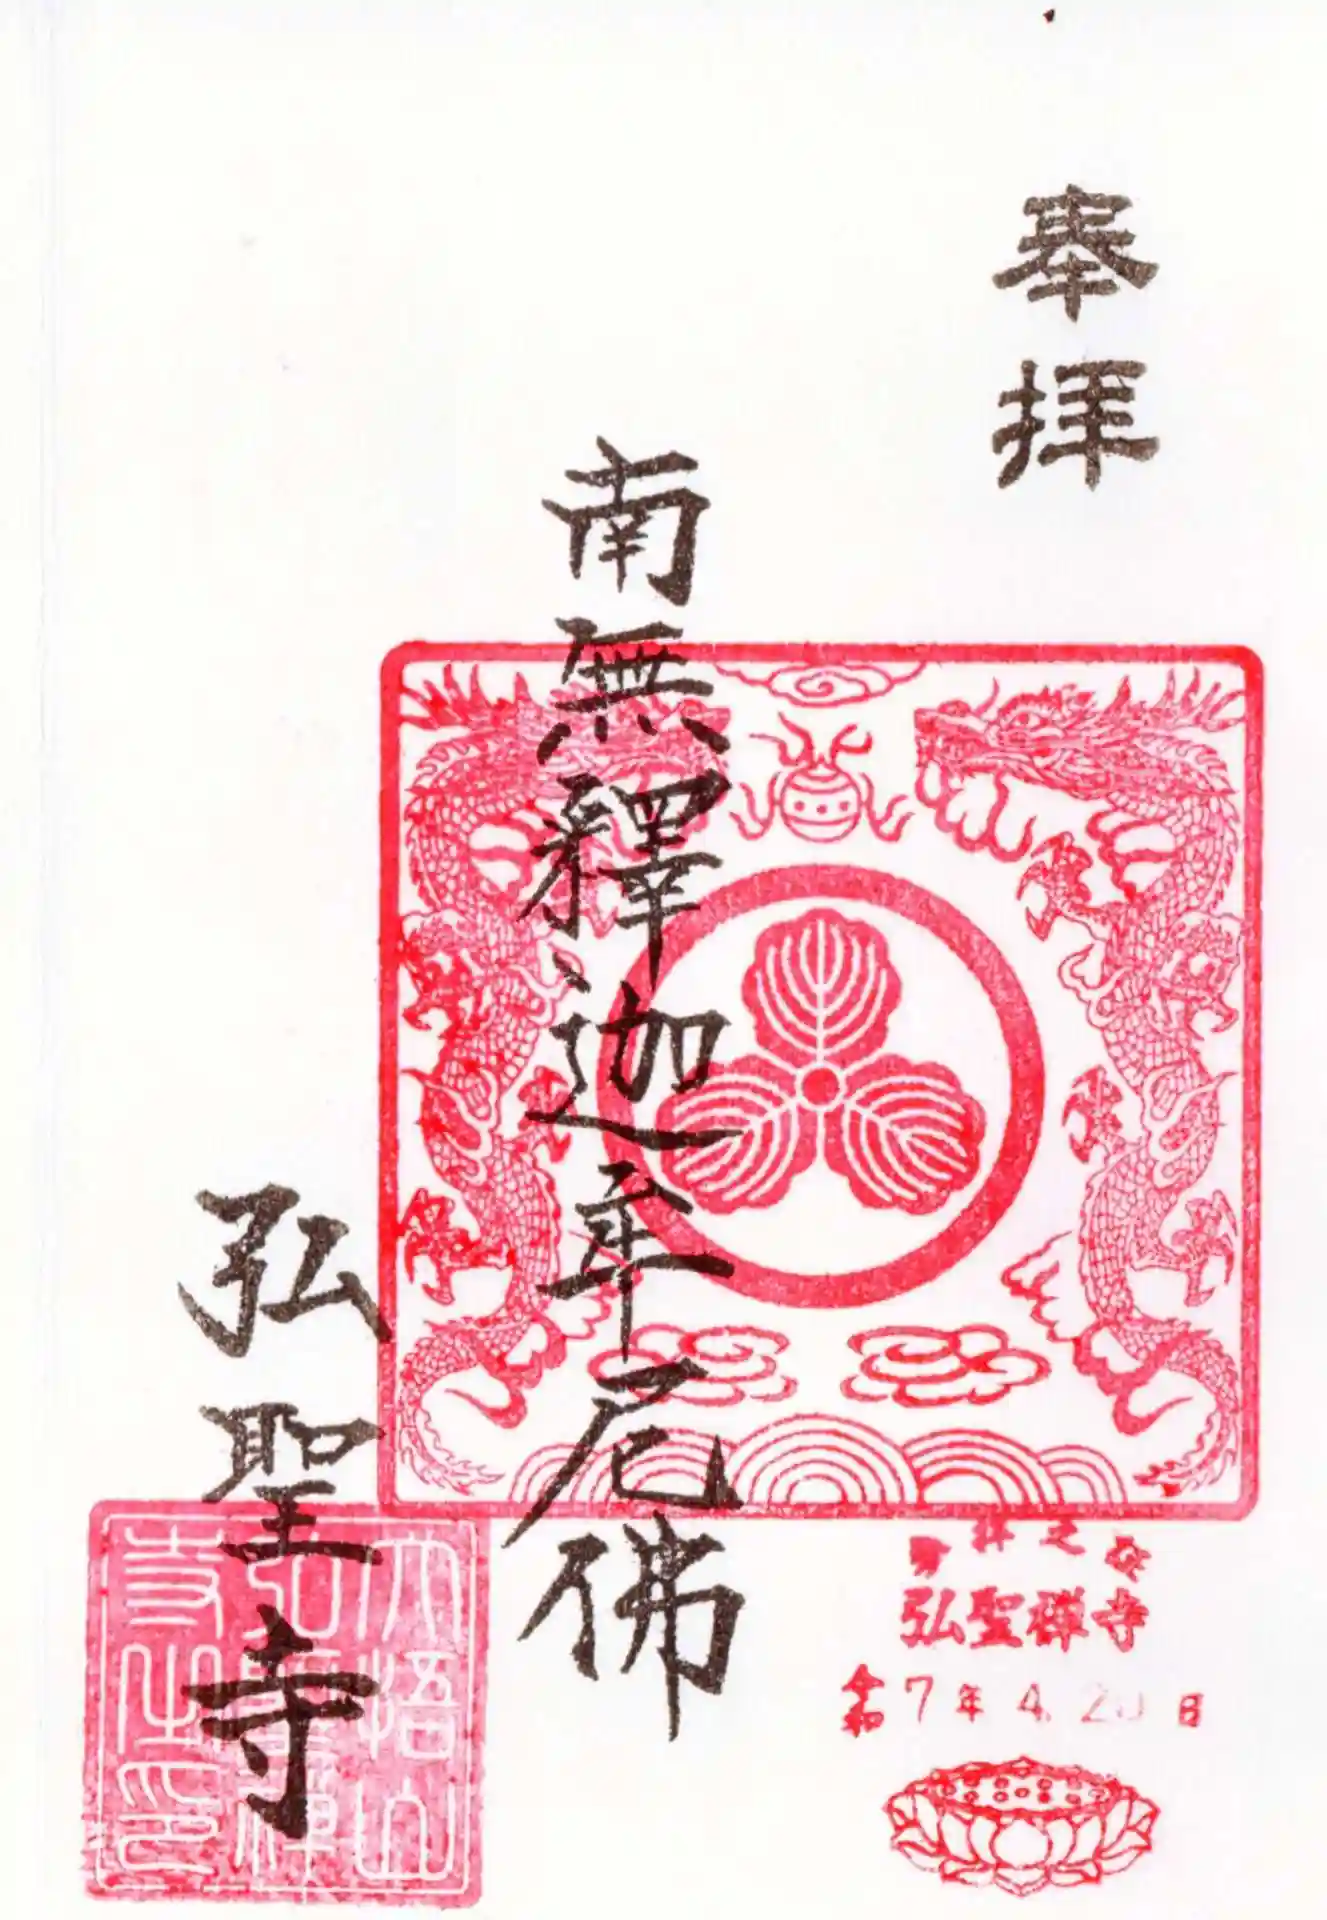 奉拝
南無釋迦牟尼佛
弘聖寺
弘聖禅寺
令和7年4.20日
大悟山
弘聖禅
寺之印